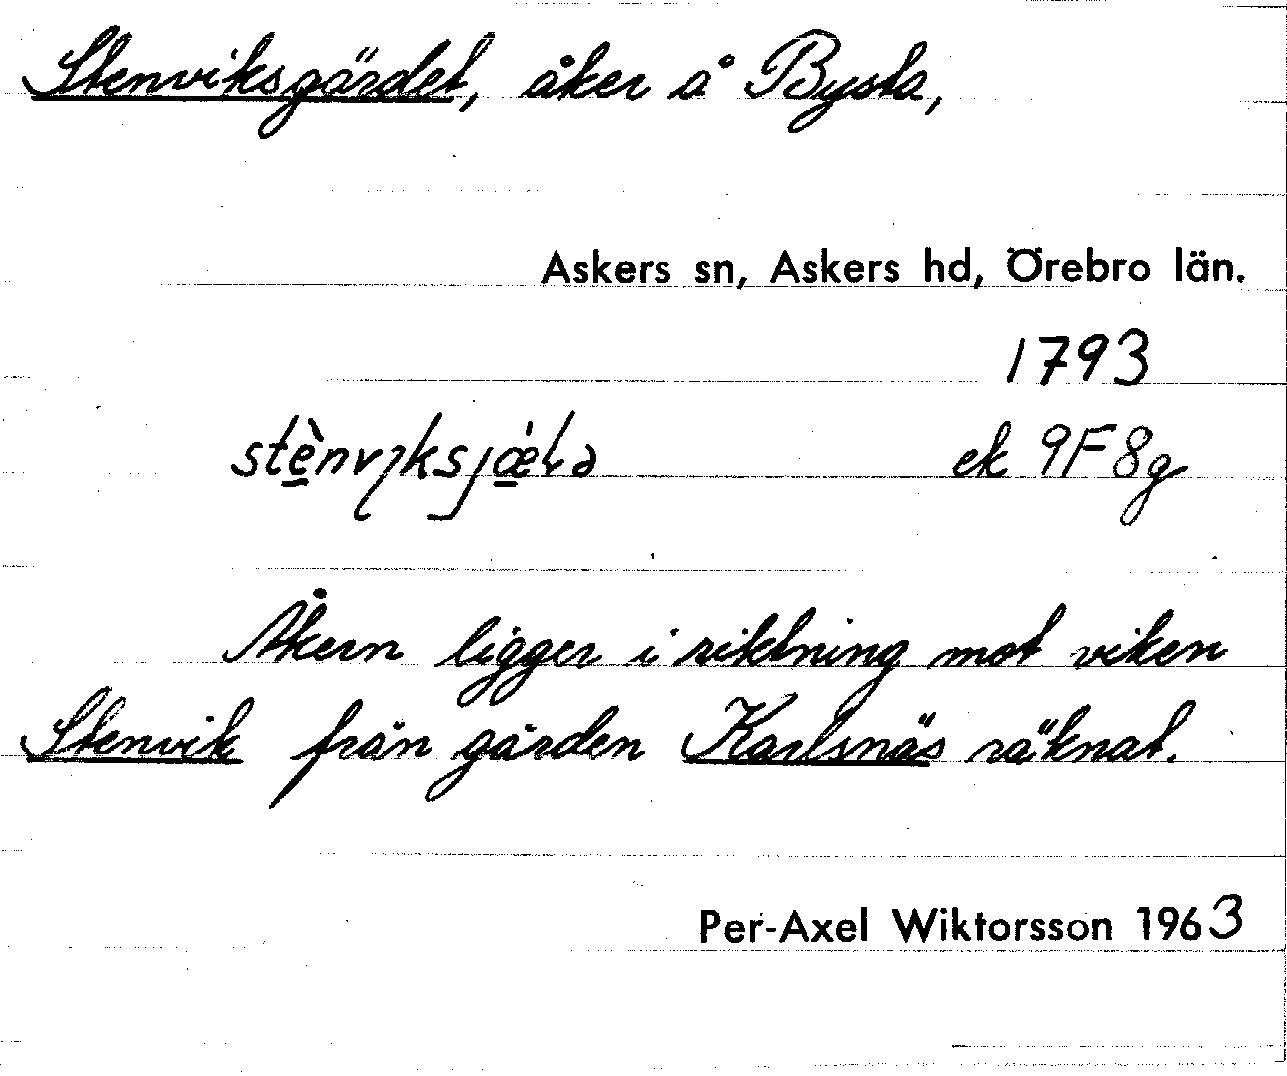 Stenviksgärdet, åker å Bysta,
Askers sn, Askers hd, Örebro län.
1793
ek 9F8g
Åkern ligger i riktning mot viken
Stenvik från gården Karlsnäs räknat.
Per-Axel Wiktorsson 1963